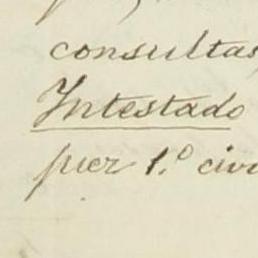 consultas
Intestado
juez 1.º civi